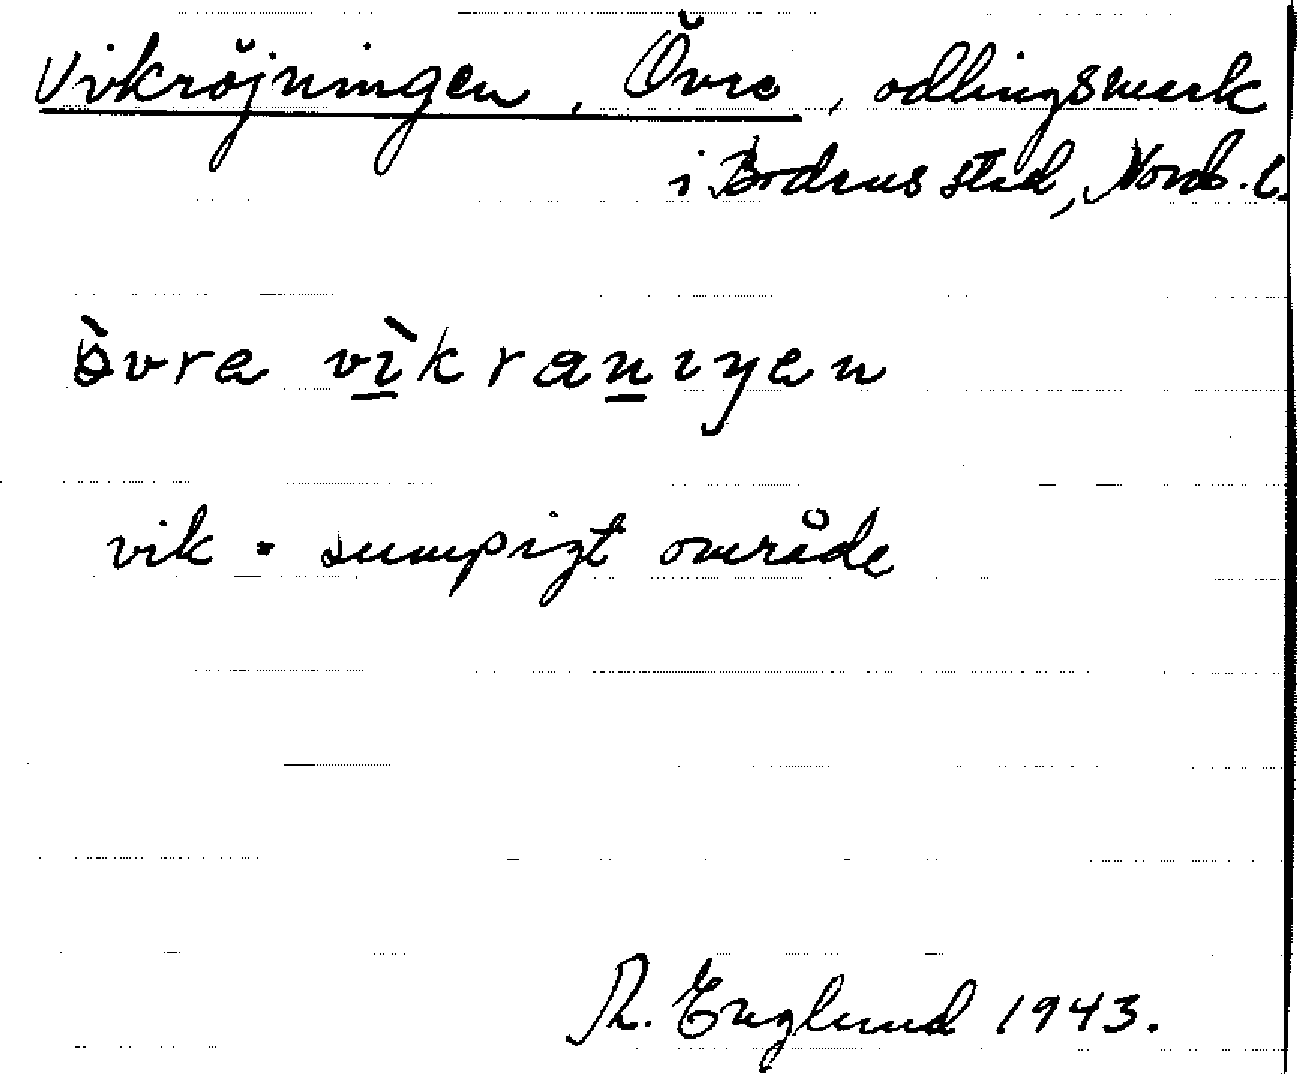 Vikröjningen, Övre, odlingsmark
i Bodens stad, Norrb. l.
òvra vìkranıŋen
vik = sumpigt område
R. Englund 1943.